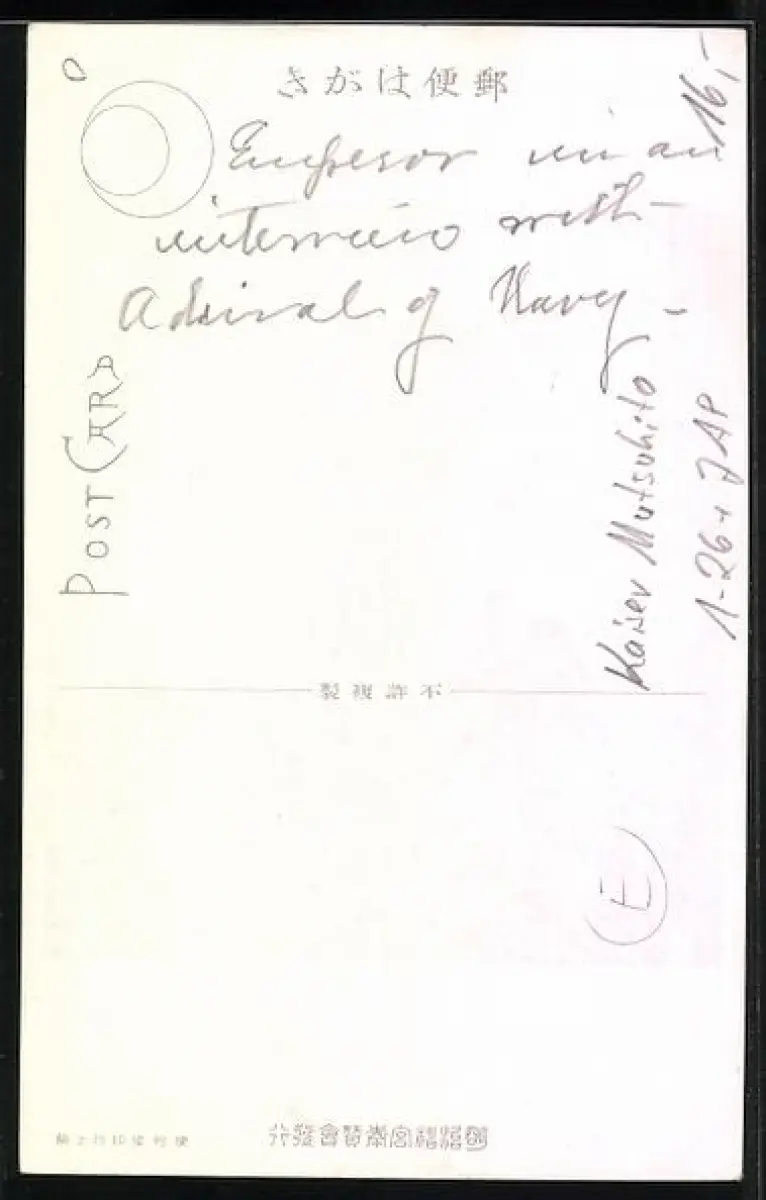 郵便はがき
Emperor in an
interview with
Admiral of Navy -
16,-
POST CARD
Kaiser Mutsuhito
1-26+ JAP
不許複製
E
明治神宮奉賛會發行